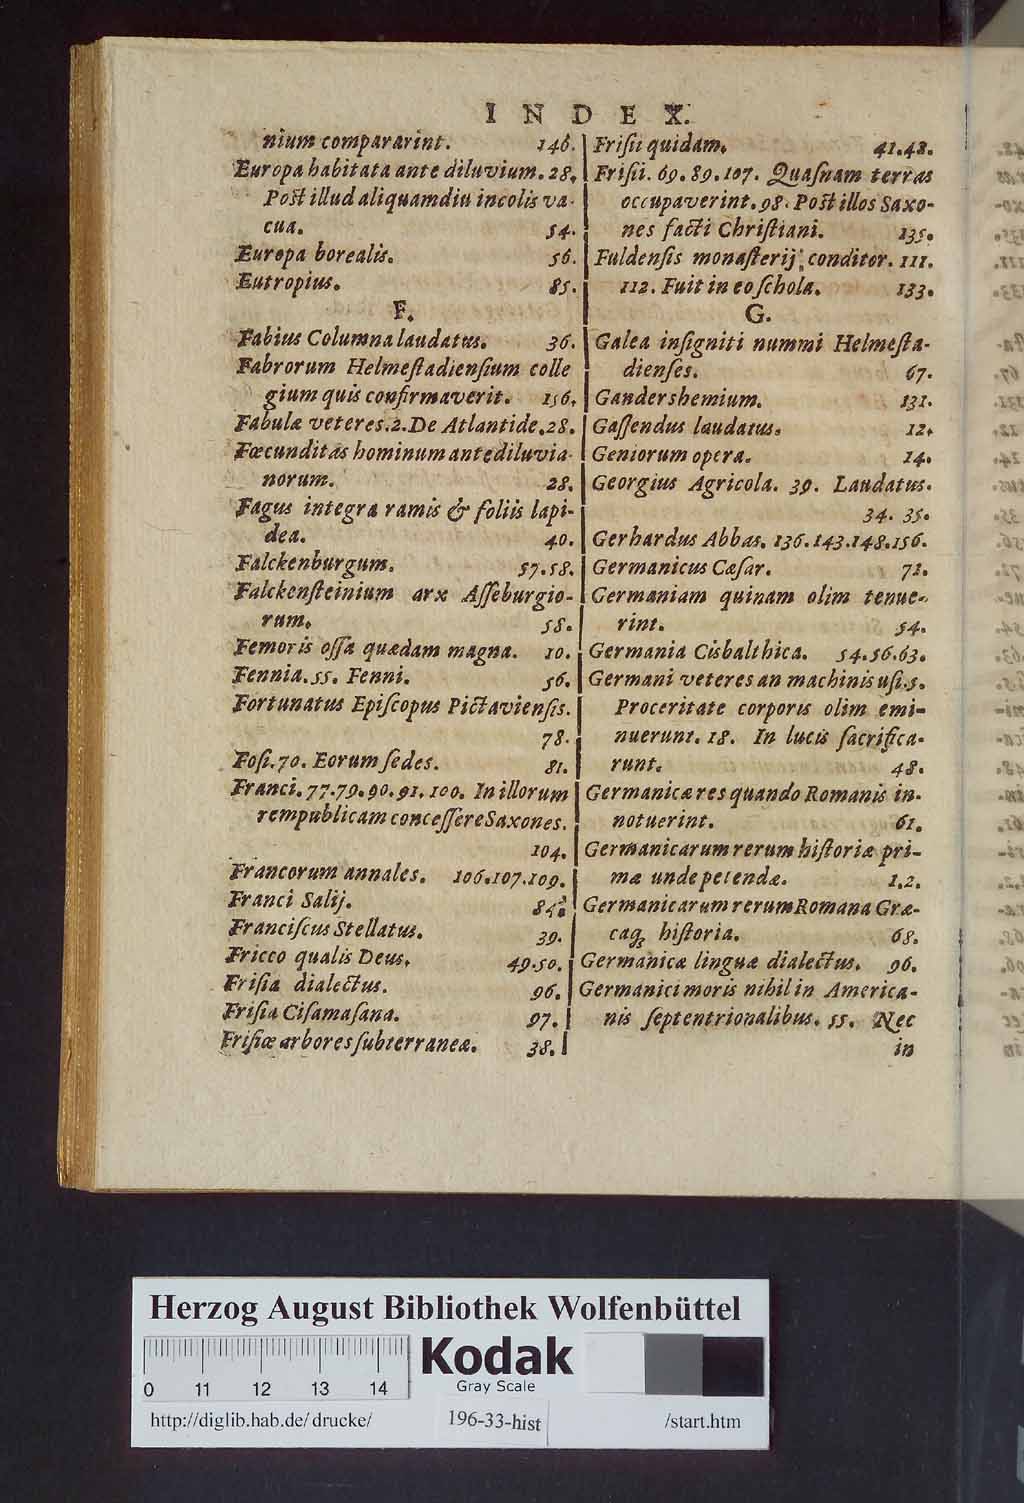 INDEX.
nium compararint. 146.
Europa habitata ante diluvium. 28.
Post illud aliquamdiu incolis va-
cua. 54.
Europa borealis. 56.
Eutropius. 85.
F.
Fabius Columna laudatus. 36.
Fabrorum Helmeſtadienſium colle
gium quis confirmaverit. 156.
Fabulæ veteres. 2. De Atlantide. 28.
Fœcunditas hominum antediluvia-
norum. 28.
Fagus integra ramis & foliis lapi-
dea. 40.
Falckenburgum. 57. 58.
Falckenſteinium arx Aſſeburgio-
rum. 58.
Femoris oſſa quædam magna. 10.
Fennia. 55. Fenni. 56.
Fortunatus Epiſcopus Pictavienſis.
78.
Foſi. 70. Eorum ſedes. 81.
Franci. 77. 79. 90. 91. 100. In illorum
rempublicam conceſſere Saxones.
104.
Francorum annales. 106. 107. 109.
Franci Salij.
Franciſcus Stellatus. 39.
Fricco qualis Deus. 49. 50.
Friſia dialectus. 96.
Friſia Ciſamaſana. 97.
Friſiæ arbores ſubterraneæ. 38.
Friſii quidam. 41. 48.
Friſii. 69. 89. 107. Quaſnam terras
occupaverint. 98. Post illos Saxo-
nes facti Chriſtiani. 135.
Fuldenſis monaſterij conditor. 111.
112. Fuit in eo ſchola. 133.
G.
Galea inſigniti nummi Helmeſta-
dienſes. 67.
Gandershemium. 131.
Gaſſendus laudatus. 12.
Geniorum opera. 14.
Georgius Agricola. 39. Laudatus.
34. 35.
Gerhardus Abbas. 136. 143. 148. 156.
Germanicus Cæſar. 72.
Germaniam quinam olim tenue-
rint. 54.
Germania Cisbalthica. 54. 56. 63.
Germani veteres an machinis uſi. 5.
Proceritate corporis olim emi-
nuerunt. 18. In lucis ſacrifica-
runt. 48.
Germanicæ res quando Romanis in-
notuerint. 61.
Germanicarum rerum hiſtoriæ pri-
mæ unde petendæ. 1. 2.
Germanicarum rerum Romana Græ-
caq; hiſtoria. 68.
Germanicæ linguæ dialectus. 96.
Germanici moris nihil in America-
nis ſeptentrionalibus. 55. Nec
in
Herzog August Bibliothek Wolfenbüttel
Kodak
Gray Scale
0 11 12 13 14
http://diglib.hab.de/drucke/ 196-33-hist /start.htm